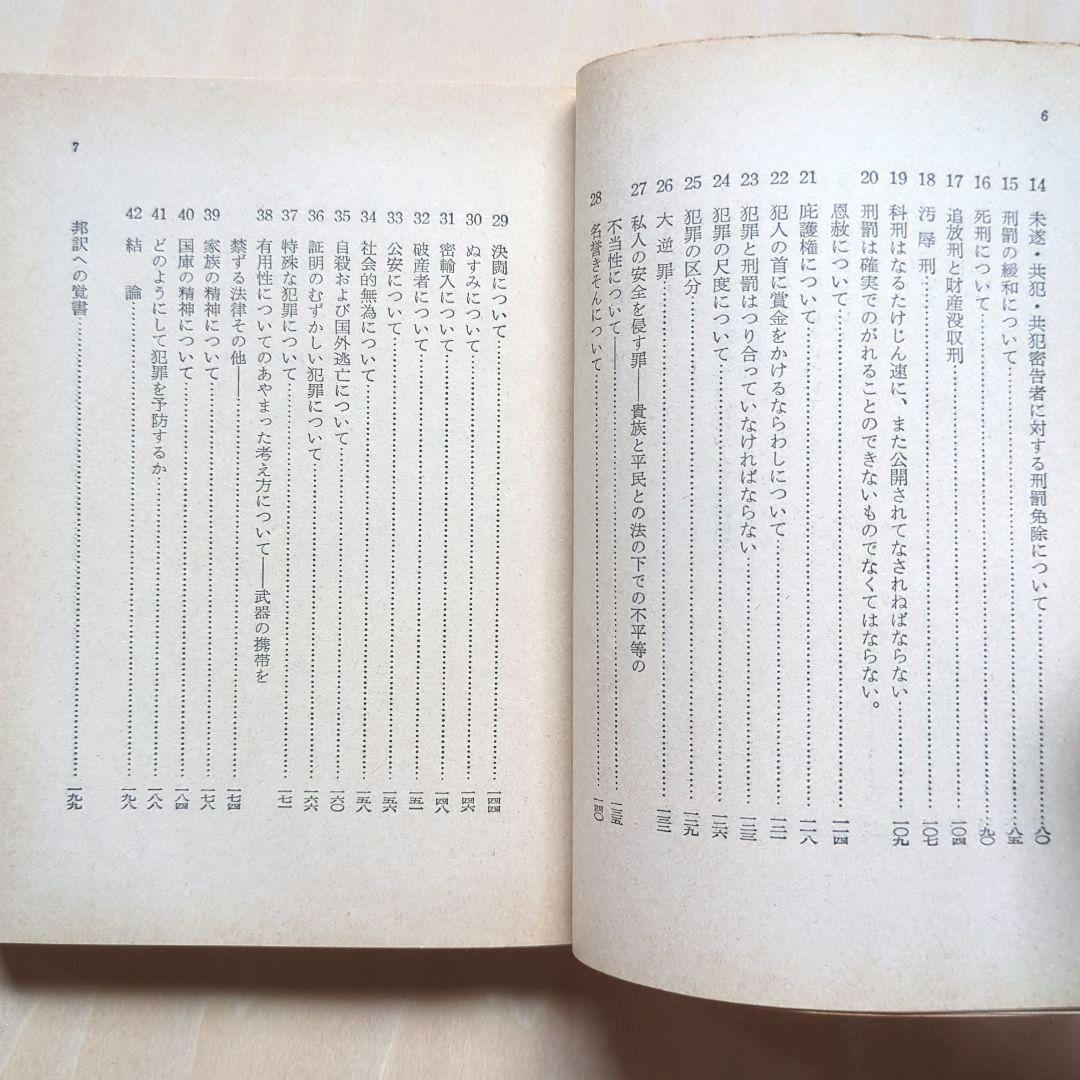 6
14 未遂・共犯・共犯密告者に対する刑罰免除について……八〇
15 刑罰の緩和について……八五
16 死刑について……九〇
17 追放刑と財産没収刑……一〇四
18 汚辱刑……一〇七
19 科刑はなるたけじん速に、また公開されてなされねばならない……一〇九
20 刑罰は確実でのがれることのできないものでなくてはならない。
恩赦について……一一四
21 庇護権について……一一八
22 犯人の首に賞金をかけるならわしについて……一二一
23 犯罪と刑罰はつり合っていなければならない……一二三
24 犯罪の尺度について……一二六
25 犯罪の区分……一二九
26 大逆罪……一三二
27 私人の安全を侵す罪――貴族と平民との法の下での不平等の
不当性について……一三五
28 名誉きそんについて……一四〇
7
29 決闘について……一四四
30 ぬすみについて……一四六
31 密輸入について……一四八
32 破産者について……一五一
33 公安について……一五六
34 社会的無為について……一五八
35 自殺および国外逃亡について……一六〇
36 証明のむずかしい犯罪について……一六六
37 特殊な犯罪について……一七一
38 有用性についてのあやまった考え方について――武器の携帯を
禁ずる法律その他――……一七四
39 家族の精神について……一七六
40 国庫の精神について……一八四
41 どのようにして犯罪を予防するか……一八八
42 結論……一九八
邦訳への覚書……一九九